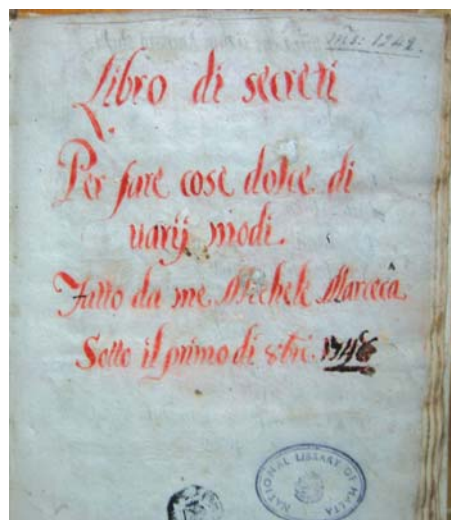 ms: 1242.
Libro di secreti
Per fare cose dolce di
varij modi.
Fatto da me Michele Marceca
Sotto il primo di 8bri. 1748
NATIONAL LIBRARY OF MALTA